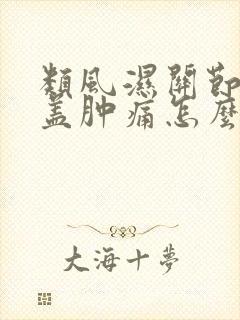 類風濕關節
盖肿痛怎麼
大海十夢